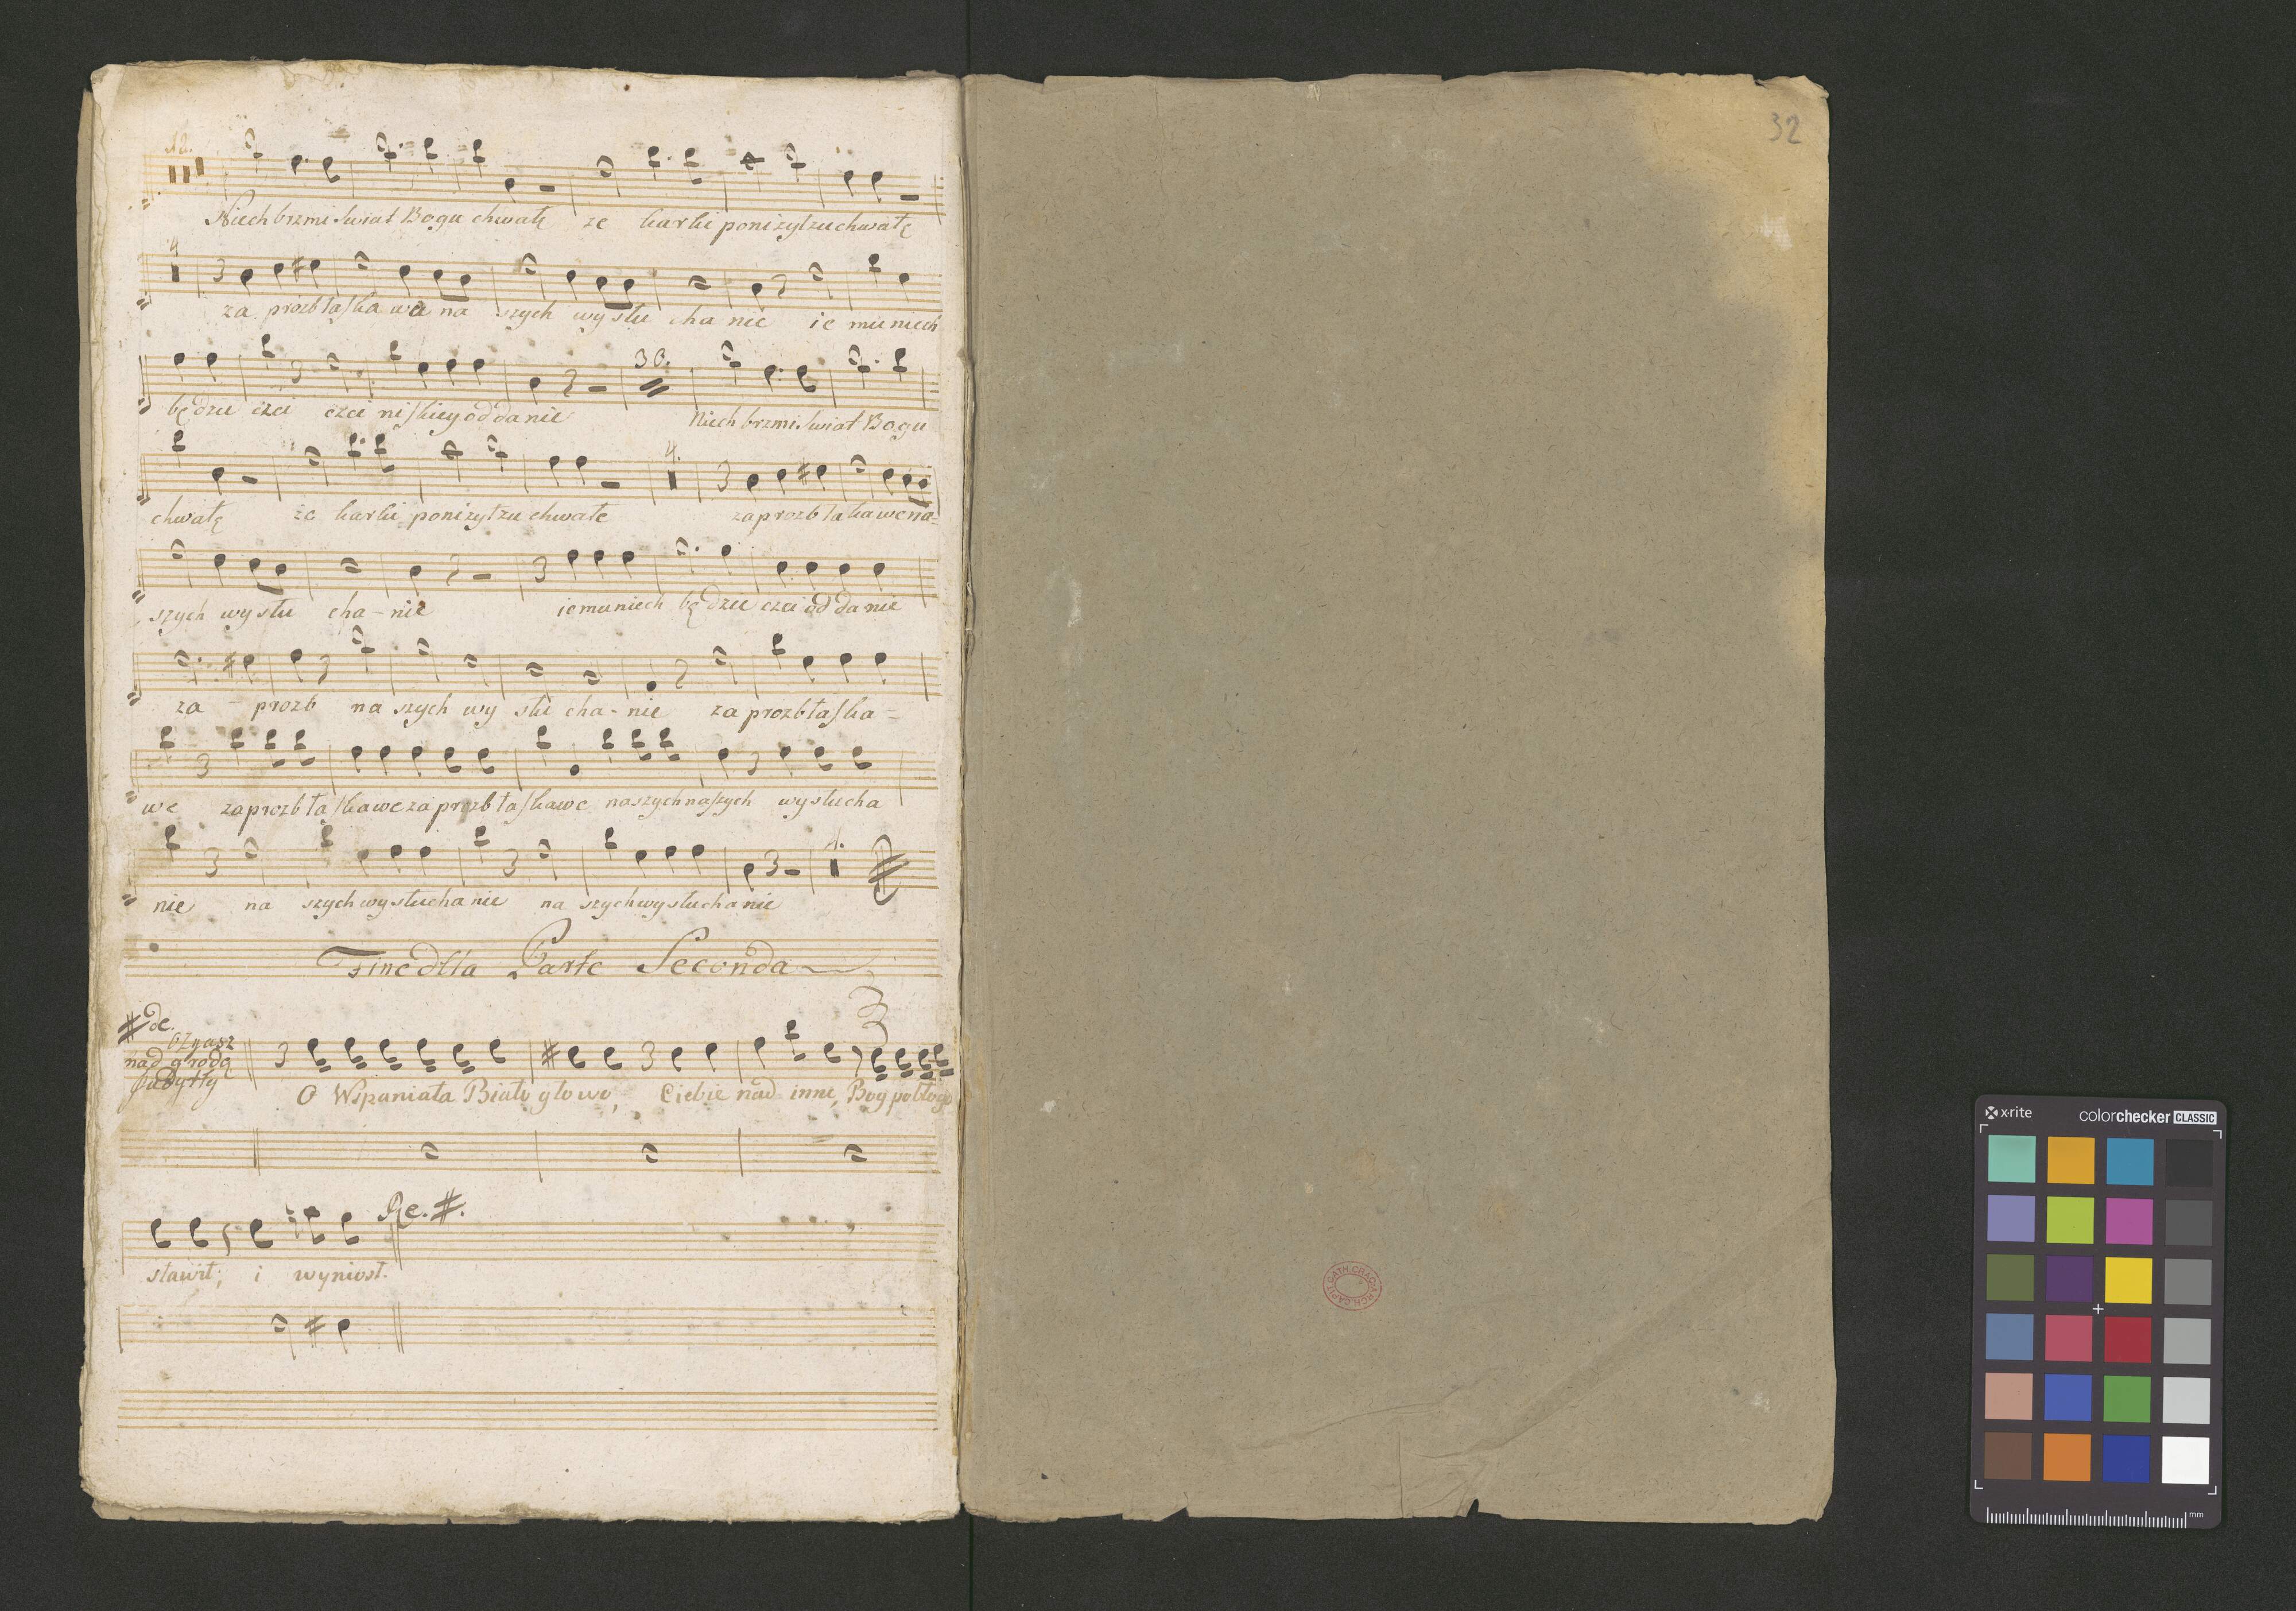 12.
Niech brzmi swiat Bogu chwałę ze karki poniżył zuchwałę
4
za prozb łaskawe na szych wy słu cha nie ie mu niech
30.
będzie czci czci niskiey od da nie Niech brzmi swiat Bogu
4.
chwałę że karki poniżył zu chwałe za prozb ła kawe na-
szych wy słu cha-nie iemu niech będzie czci od da nie
za - prozb na szych wy słu cha-nie za prozb łaska-
we za prozb łaskawe za prozb łaskawe naszych naszych wysłucha
1.
nie na szych wy słucha nie na szych wy słucha nie
Fine dlla Parte Seconda
#de.
nad grodą
O Wspaniała Biało głowo, Ciebie nad inne, Bog pobłogo
Re. #.
sławił; i wyniosł.
32
ARCH. CAPIT. CATH. CRAC.
x-rite colorchecker CLASSIC
mm